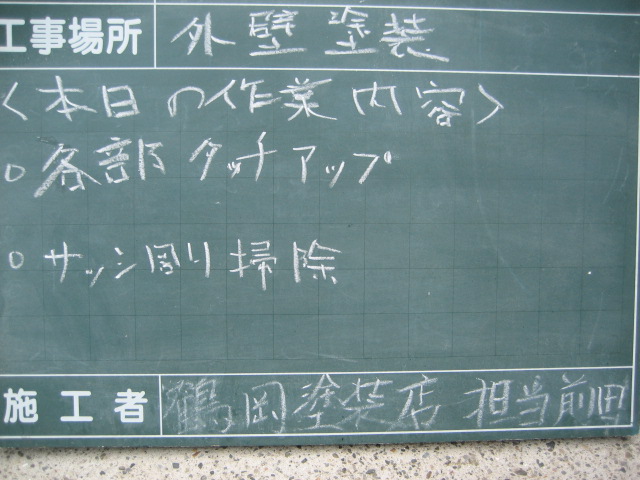 工事場所 外壁塗装
<本日の作業内容>
○各部タッチアップ
○サッシ周り掃除
施工者 鶴岡塗装店 担当前田